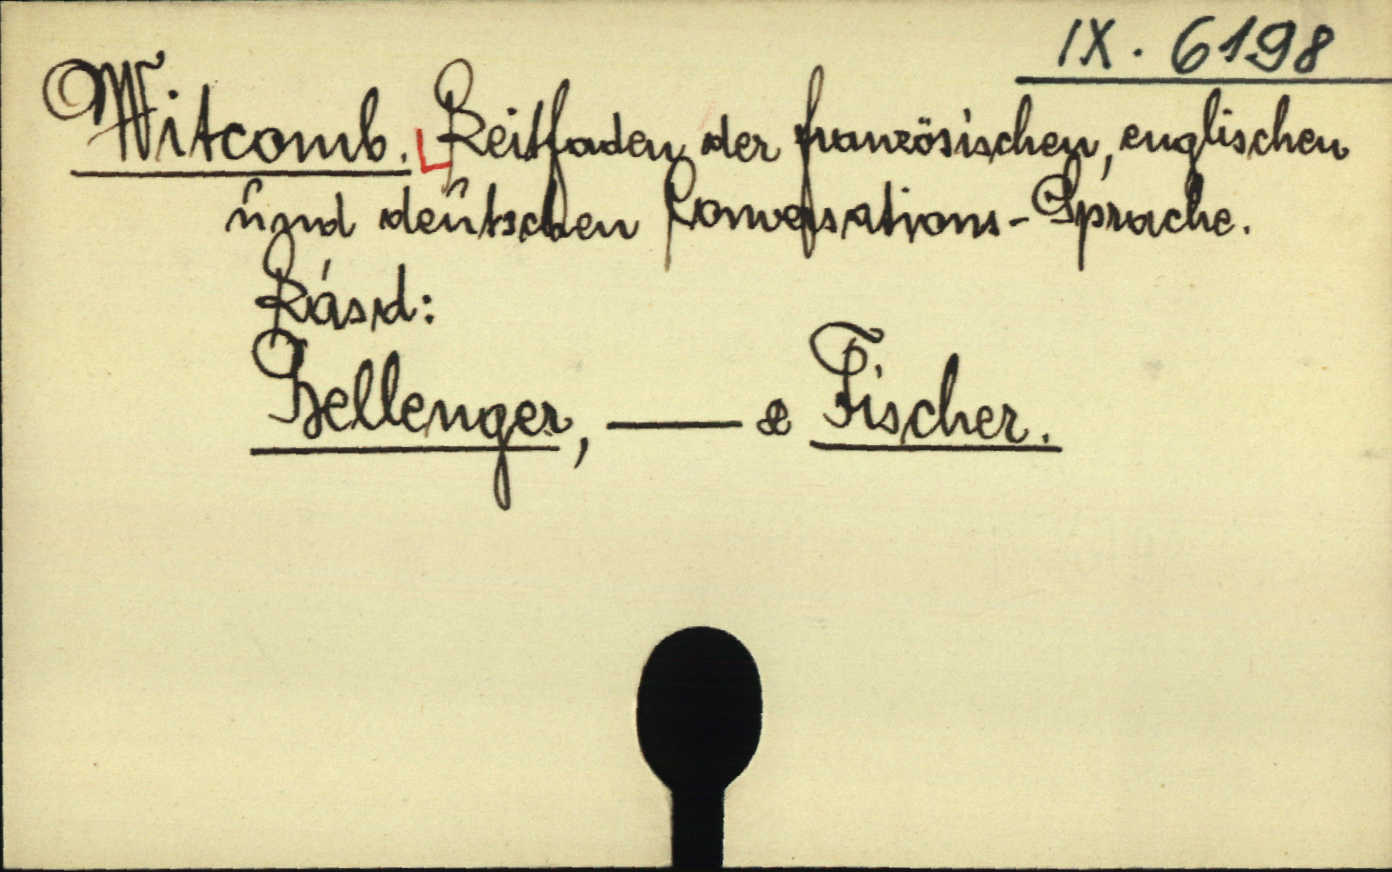 IX. 6198
Witcomb. Leitfaden der französischen, englischen
und deutschen Konversations-Sprache.
Lásd:
Bellenger, — & Fischer.